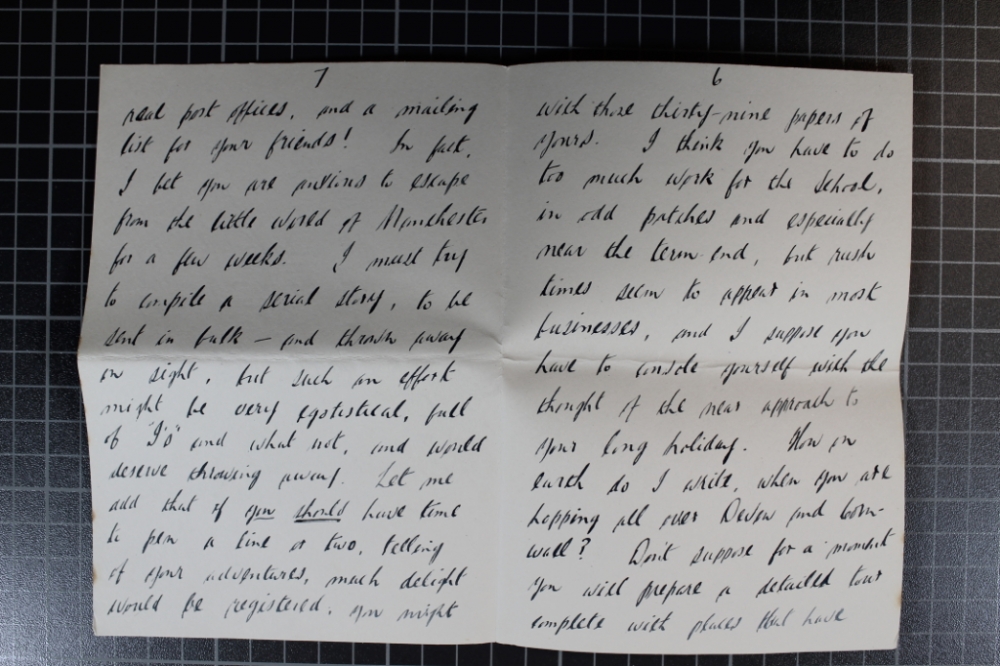 6
with those thirty-nine papers of
yours. I think you have to do
too much work for the school,
in odd patches and especially
near the term-end, but rush
times seem to appear in most
businesses, and I suppose you
have to console yourself with the
thought of the near approach to
your long holiday. How on
earth do I write, when you are
hopping all over Devon and Corn-
wall? Don't suppose for a moment
you will prepare a detailed tour
complete with places that have
7
real post offices, and a mailing
list for your friends! In fact,
I bet you are anxious to escape
from the little world of Manchester
for a few weeks. I must try
to compile a serial story, to be
sent in bulk – and thrown away
on sight, but such an effort
might be very egotistical, full
of "I's" and what not, and would
deserve throwing away. Let me
add that if you should have time
to pen a line or two, telling
of your adventures, much delight
would be registered. You might